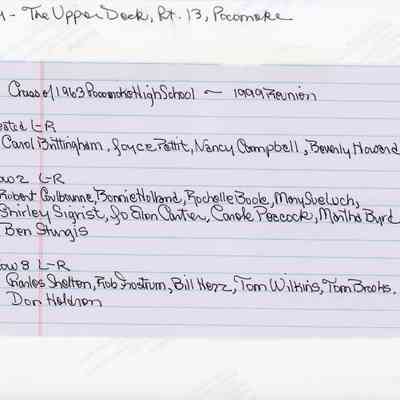 - The Upper Deck, Rt. 13, Pocomoke
Class of 1963 Pocomoke High School ~ 1999 Reunion
ated L-R
Carol Brittingham, Joyce Pettit, Nancy Campbell, Beverly Howard
ow 2 L-R
Robert Culbourne, Bonnie Holland, Rochelle Booke, Mary Sveluch,
Shirley Sigrist, Jo Ellen Carter, Carole Peacock, Martha Byrd
Ben Sturgis
ow 3 L-R
Charles Shelton, Rob Frostrum, Bill Herz, Tom Wilkins, Tom Brooks,
Don Holdren